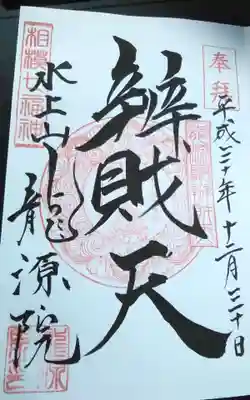 奉拝
平成三十年十二月三十日
辨財天
相模七福神
水上山
龍源院